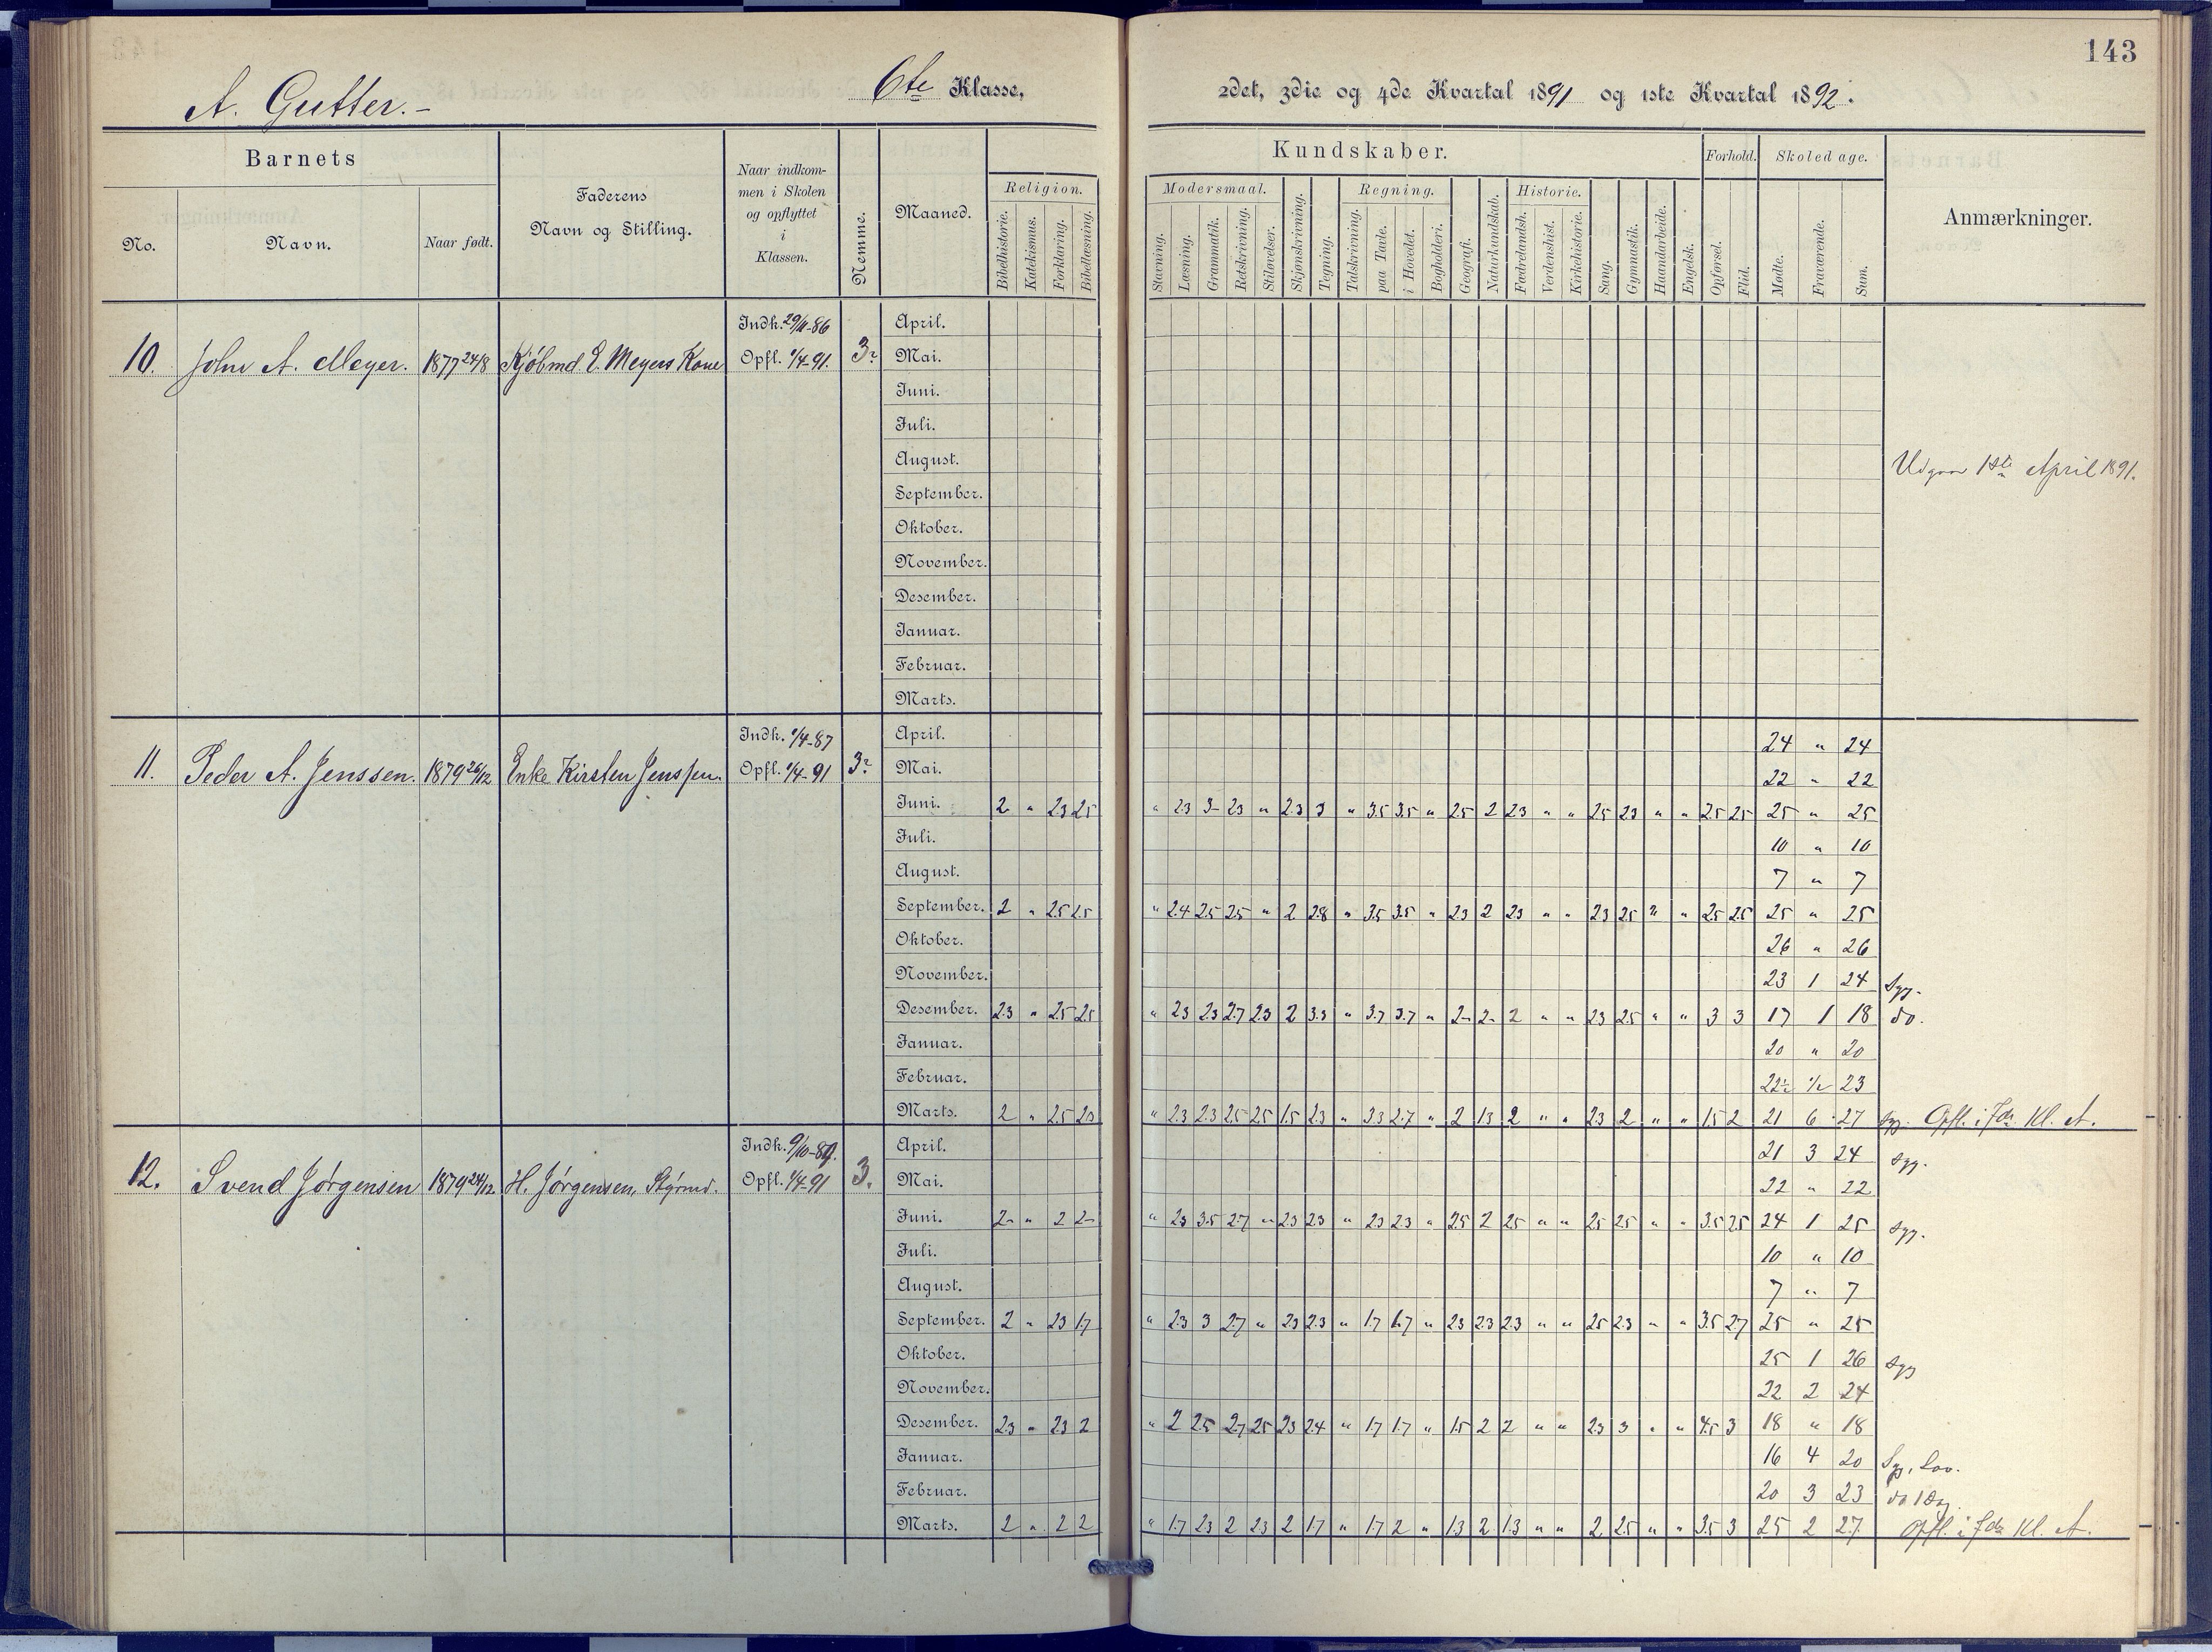 143
A. Gutter.-
6te Klasse,
2det, 3die og 4de Kvartal 1891 og 1ste Kvartal 1892.
Barnets
No.
Navn.
Naar født.
Faderens
Navn og Stilling.
Naar indkom-
men i Skolen
og opflyttet
i
Klassen.
Nemme.
Maaned.
Kundskaber.
Religion.
Bibelhistorie.
Katekismus.
Forklaring.
Bibellæsning.
Modersmaal.
Stavning.
Læsning.
Grammatik.
Retskrivning.
Stiløvelser.
Skjønskrivning.
Tegning.
Regning.
Talskrivning.
paa Tavle.
i Hovedet.
Bogholderi.
Geografi.
Naturkundskab.
Historie.
Fædrelandsh.
Verdenshist.
Kirkehistorie.
Sang.
Gymnastik.
Haandarbeide.
Engelsk.
Forhold.
Opførsel.
Flid.
Skoledage.
Mødte.
Fraværende.
Sum.
Anmærkninger.
10. John A. Meyer. 1877 24/8 Kjöbmd E. Meyers Kone
Indk. 29/11-86
Opfl. 1/4-91. 3?
April.
Mai.
Juni.
Juli.
August.
Udgaar 1ste April 1891.
September.
Oktober.
November.
Desember.
Januar.
Februar.
Marts.
11. Peder A. Jenssen. 1879 26/12 Enke Kirsten Jenssen.
Indk. 1/4-87
Opfl. 1/4-91 3?
April. 24 " 24
Mai. 22 " 22
Juni. 2 " 23 25 " 23 3- 23 " 2.3 3 " 3.5 3.5 " 25 2 23 " " 25 23 " " 2.5 25 25 " 25
Juli. 10 " 10
August. 7 " 7
September. 2 " 25 25 " 2.4 25 25 " 2 2.8 " 3.5 3.5 " 23 2 23 " " 23 25 " " 25 25 25 " 25
Oktober. 26 " 26
November. 23 1 24 Syg.
Desember. 2.3 " 25 25 " 23 23 2.7 23 2 3.3 " 3.7 3.7 " 2- 2- 2 " " 23 25 " " 3 3 17 1 18 do.
Januar. 20 " 20
Februar. 22½ ½ 23
Marts. 2 " 25 23 " 2.3 2.3 25 25 1.5 23 " 3.3 2.7 " 2 13 2 " " 23 2 " " 15 2 21 6 27 Syg. Opfl. i 7de Kl. A.
12. Svend Jørgensen 1879 24/12 H. Jørgensen, Styrmd.
Indk. 9/10-89.
Opfl. 1/4-91 3.
April. 21 3 24 Syg.
Mai. 22 " 22
Juni. 2- " 2 2- " 23 3.5 2.7 " 23 23 " 23 23 " 25 2 25 " " 25 25 " " 3.5 25 24 1 25 Syg.
Juli. 10 " 10
August. 7 " 7
September. 2 " 23 17 " 23 3 27 " 23 23 " 17 1.7 " 23 23 23 " " 25 23 " " 3.5 27 25 " 25
Oktober. 25 1 26 Syg
November. 22 2 24
Desember. 23 " 23 2 " 2 25 2.7 25 23 24 " 17 1.7 " 15 2 2 " " 23 3 " " 4.5 3 18 " 18
Januar. 16 4 20 Syg, Lov.
Februar. 20 3 23 do 1 Dag.
Marts. 2 " 2 2 " 1.7 23 2 23 2 17 " 1.7 2 " 13 2 13 " " 2 25 " " 3.5 3 25 2 27 Opfl. i 7de Kl. A.